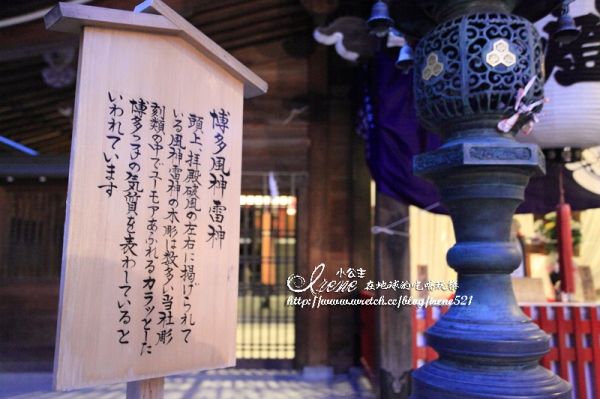 博多風神雷神
頭上、拝殿破風の左右に掲げられて
いる風神雷神の木彫は数多い当社彫
刻類の中でユーモアあふれるカラッとした
博多っ子の気質を表わしていると
いわれています
小公主
Irene 在地球的吃喝玩樂
http://www.wretch.cc/blog/irene521